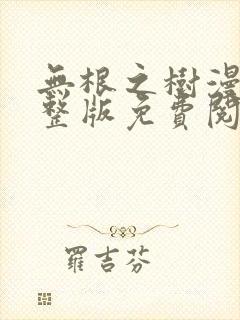 無根之樹漫
整版免費閱
羅吉芬